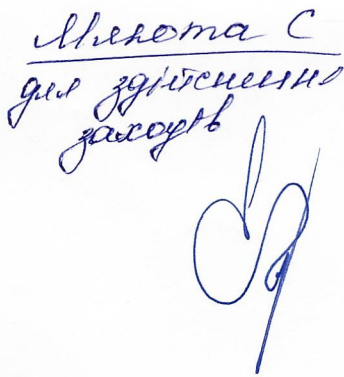 Мляота С
для здійснення
заходів